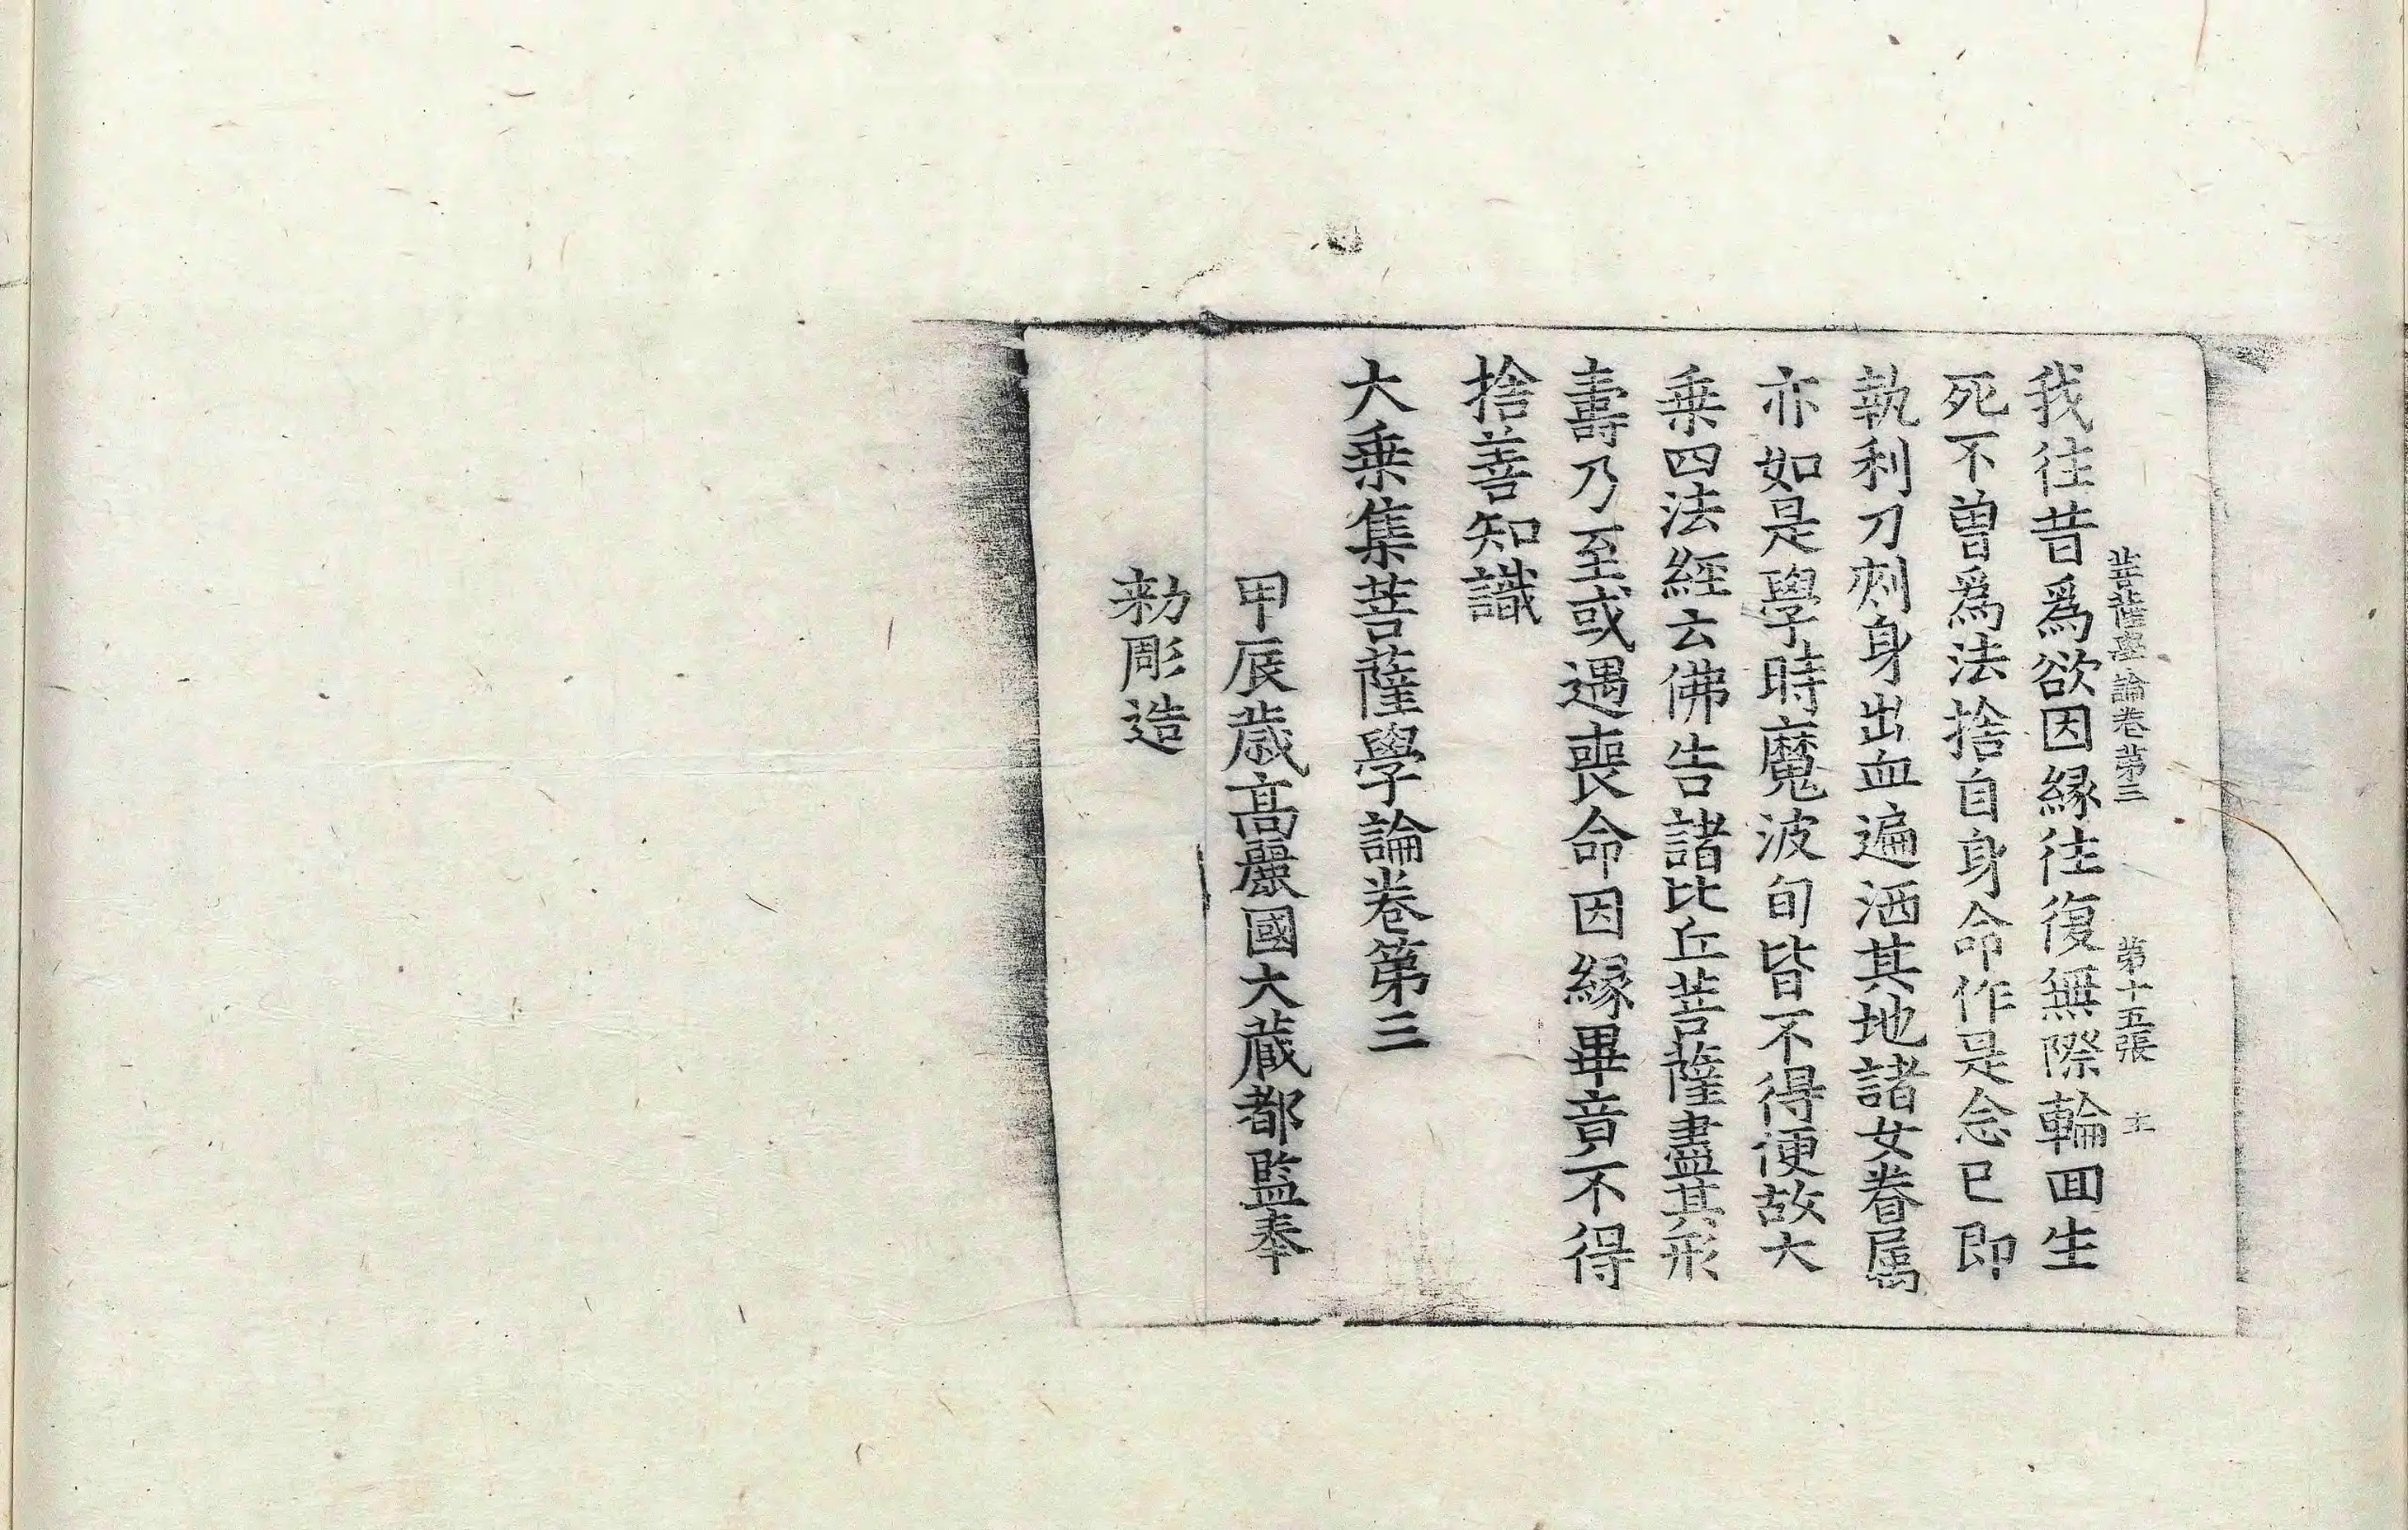 菩薩學論卷第三 第十五張 士
我往昔爲欲因緣往復無際輪回生
死不曾爲法捨自身命作是念已即
執利刀刺身出血遍洒其地諸女眷属
亦如是學時魔波旬皆不得便故大
乗四法經云佛告諸比丘菩薩盡其形
壽乃至或遇喪命因緣畢竟不得
捨善知識
大乗集菩薩學論卷第三
甲辰歲高麗國大藏都監奉
勑彫造